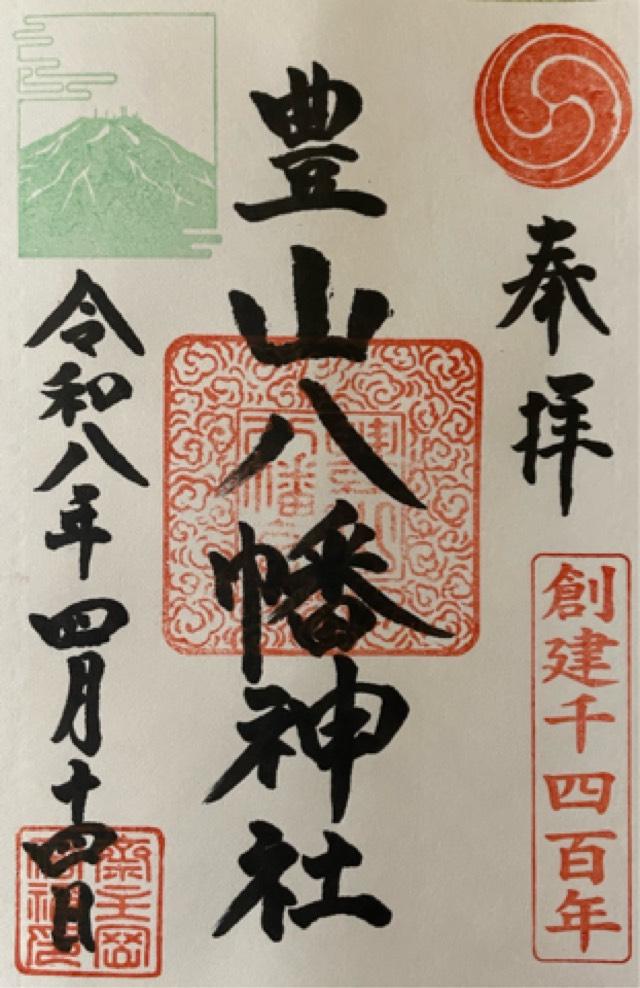 奉拝
創建千四百年
豊山八幡神社
令和八年四月十四日